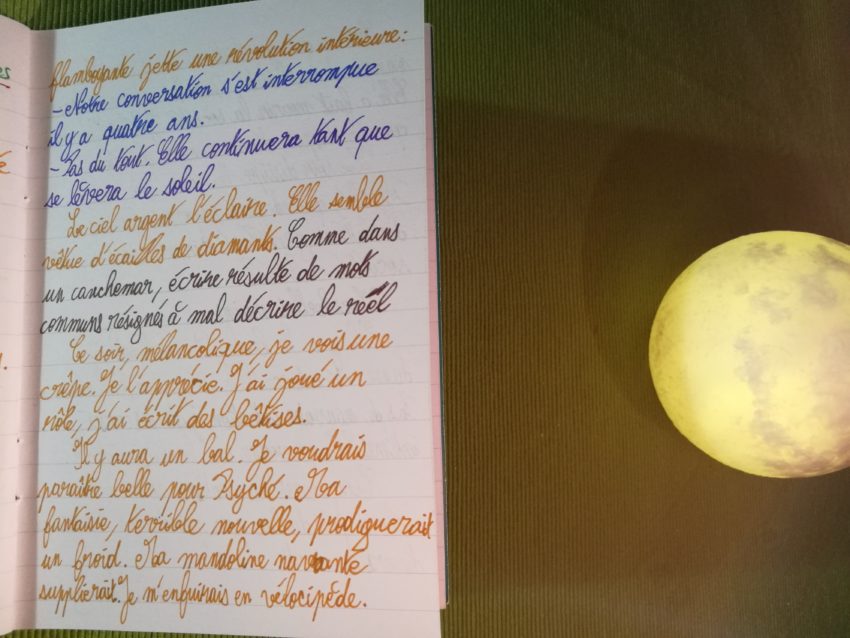 flamboyante jette une révolution intérieure :
- Notre conversation s'est interrompue
il y a quatre ans.
- Pas du tout. Elle continuera tant que
se lèvera le soleil.
Le ciel argent l'éclaire. Elle semble
vêtue d'écailles de diamants. Comme dans
un cauchemar, écrire résulte de mots
communs résignés à mal décrire le réel
Ce soir, mélancolique, je vois une
crêpe. Je l'apprécie. J'ai joué un
rôle, j'ai écrit des bêtises.
Il y aura un bal. Je voudrais
paraître belle pour Psyché. Ma
fantaisie, terrible nouvelle, prodiguerait
un froid. Ma mandoline navrante
supplierait. Je m'enfuirais en vélocipède.